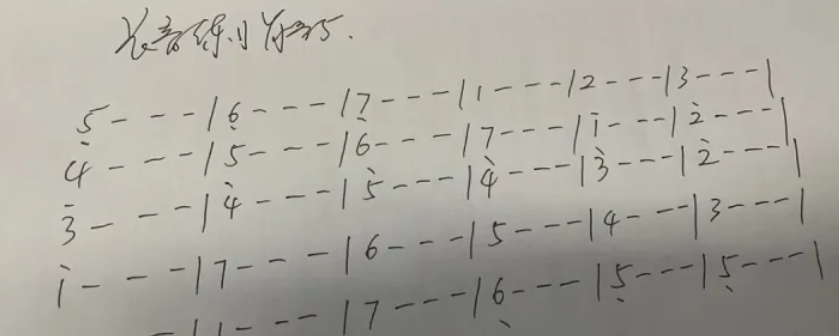 长音练习 5.
5̣ - - - | 6̣ - - - | 7̣ - - - | 1 - - - | 2 - - - | 3 - - - |
4 - - - | 5 - - - | 6 - - - | 7 - - - | 1̇ - - - | 2̇ - - - |
3̇ - - - | 4̇ - - - | 5̇ - - - | 4̇ - - - | 3̇ - - - | 2̇ - - - |
1̇ - - - | 7 - - - | 6 - - - | 5 - - - | 4 - - - | 3 - - - |
- - | 1 - - - | 7 - - - | 6̣ - - - | 5̣ - - - | 5̣ - - - |